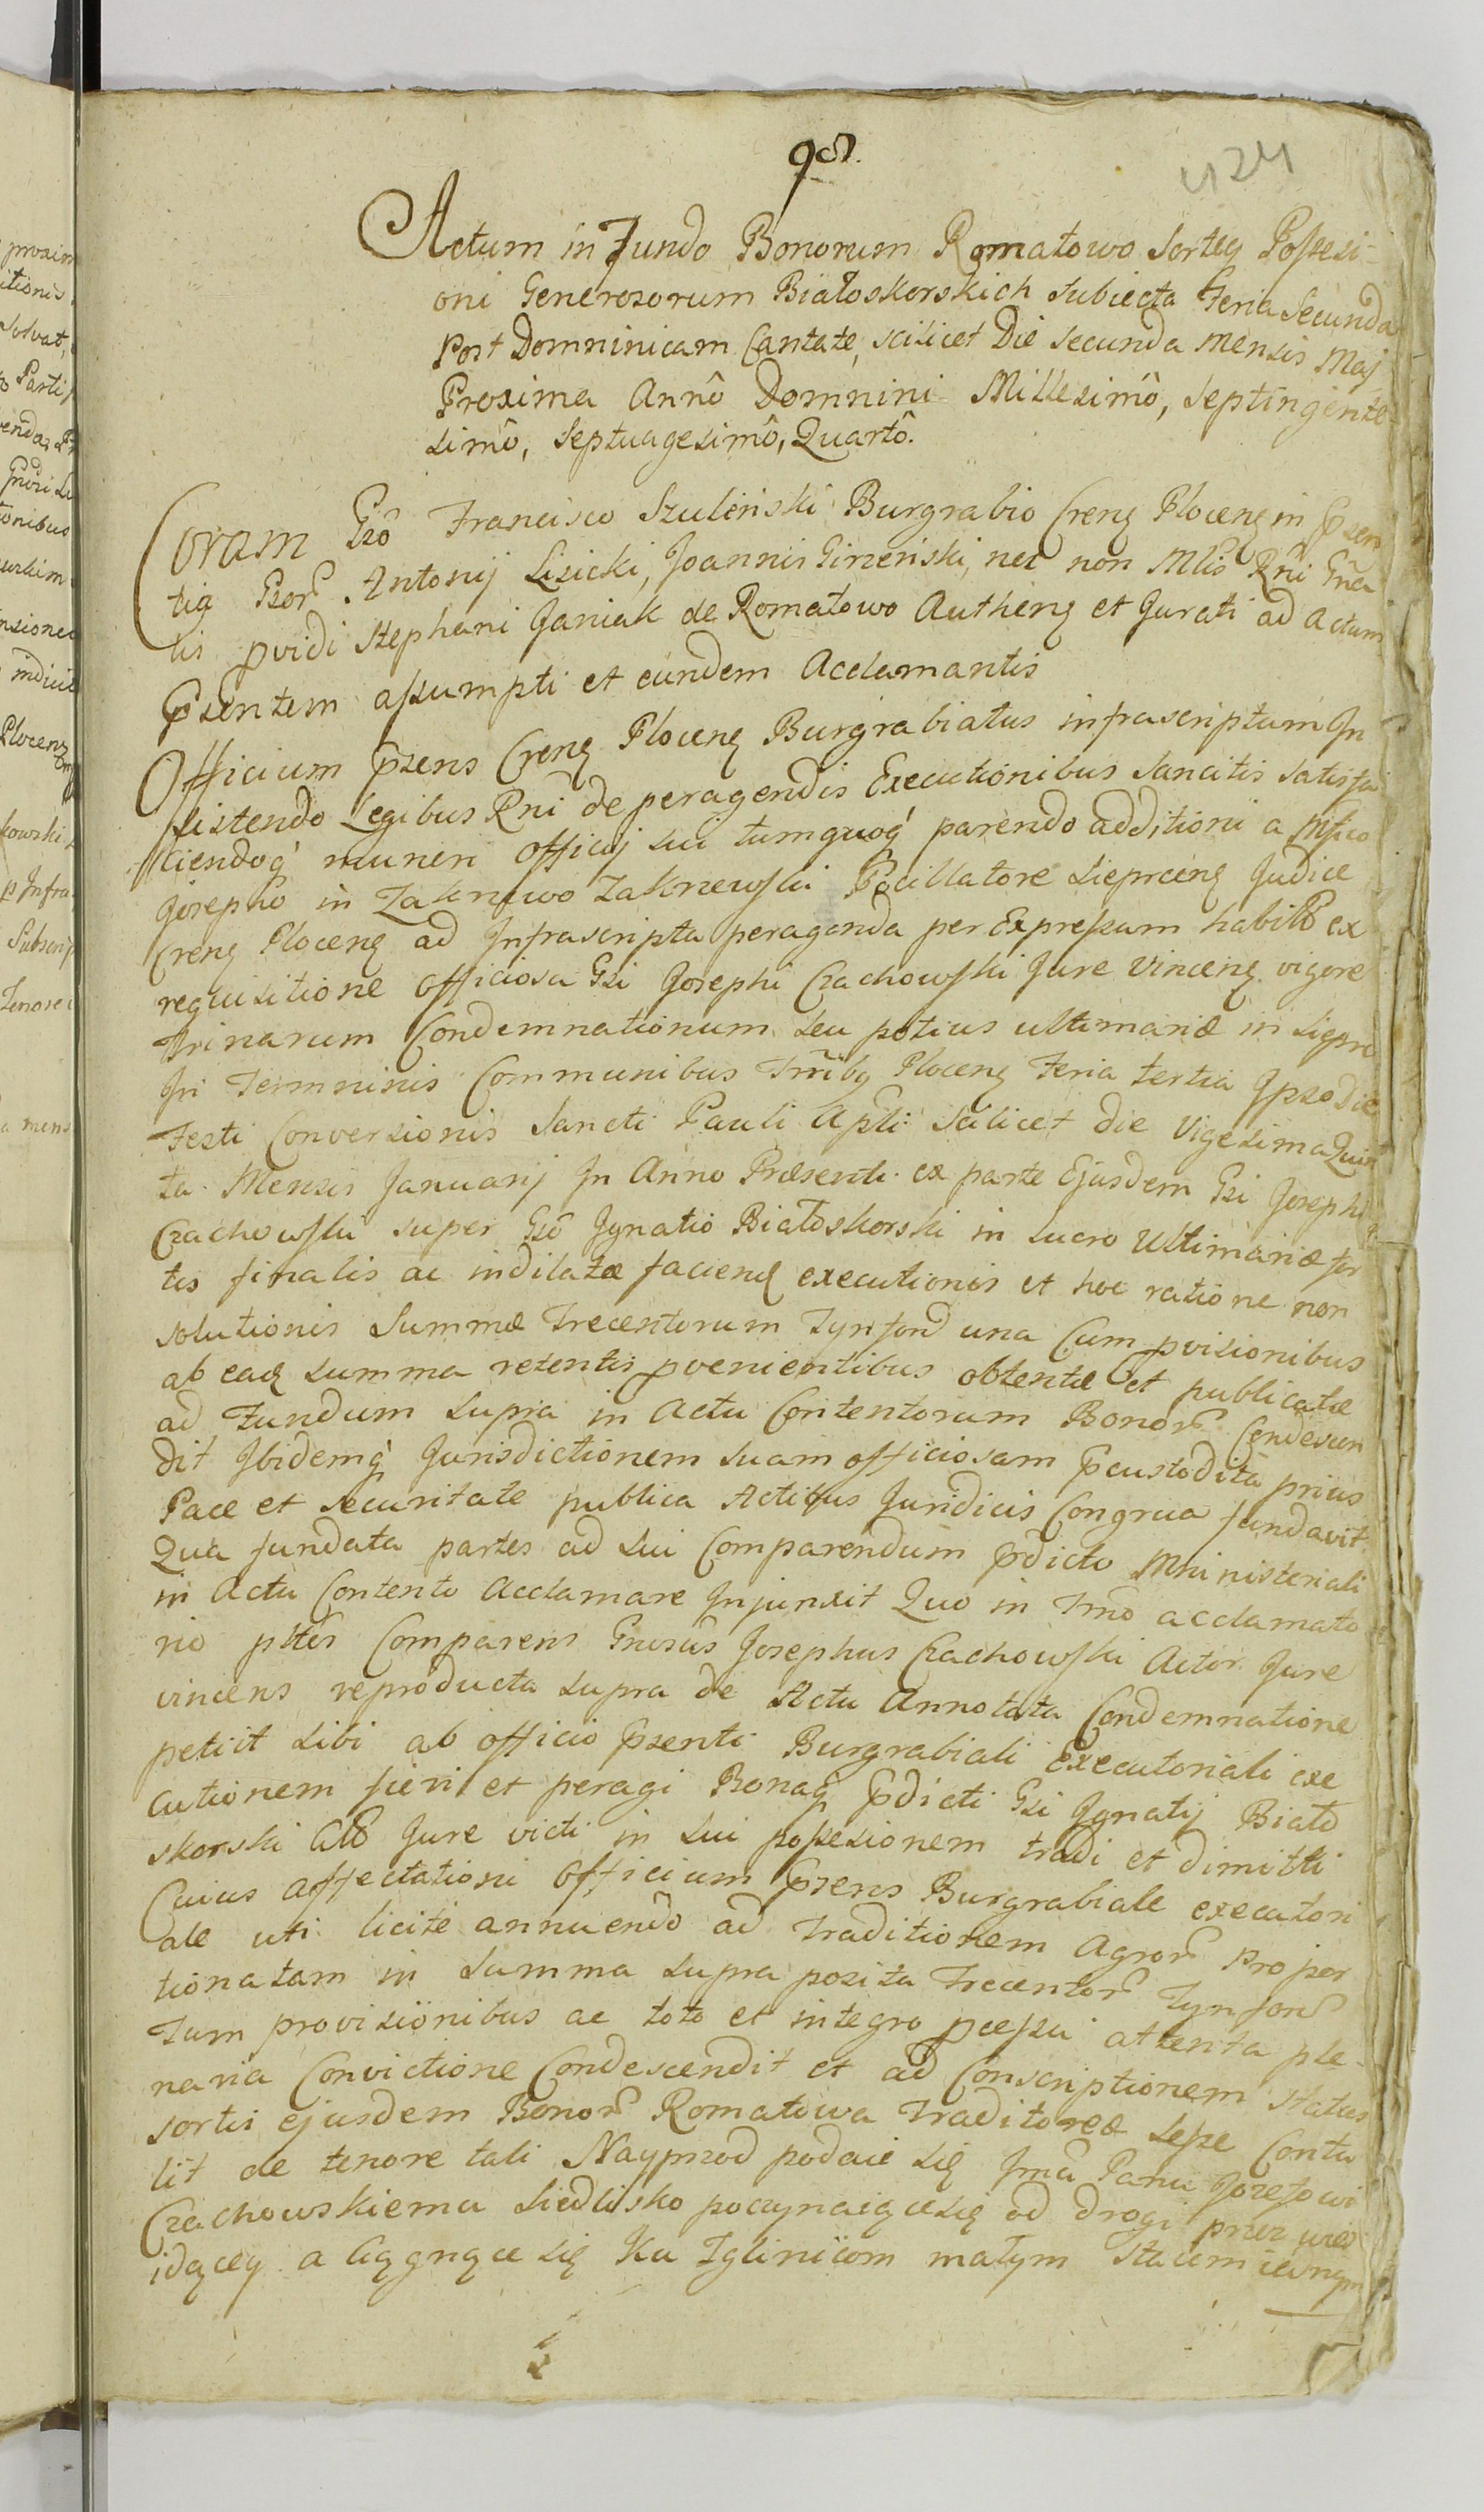 98.
424
Actum in Fundo Bonorum Romatowo Sorteq Possesi-
oni Generosorum Białoskorskich Subiecta Feria Secunda
Post Domninicam Cantate, scilicet Die Secunda Mensis Maj
Proxima Annô Domnini Millesimô, Septingente-
simô, Septuagesimô, Quartô.
Coram Gsô Francisco Szuleński Burgrabio Creng Ploceng in Psen
tia Gsor Antonij Lisicki, Joannis Girzeński, nec non Mlis Rni Gna
lis pvidi Stephani Janiak de Romatowo Autheng et Jurati ad Actum
Psentem assumpti et eundem Acclamantis
Officium Psens Creng Ploceng Burgrabiatus infrascriptum In
sistendo Legibus Rni de peragendis Executionibus Sancitis Satisfa
ciendoq muneri officij sui tumquoq parendo additioni a Mfico
Josepho in Zakrzewo Zakrzewski Pocillatore Sieprceng Judice
Creng Ploceng ad Infrascripta peragenda per Expressum habito ex
requisitione officiosa Gsi Josephi Czachowski Jure Vinceng vigore
Trinarum Condemnationum seu potius ultimariæ in
In Termninis Communibus Trribq Ploceng Feria tertia Ipso die
Festi Conversionis Sancti Pauli Apli scilicet die Vigesima Quin
ta Mensis Januarij In Anno Præsenti ex parte Ejusdem Gsi Josephi
Czachowski super Gsô Ignatio Białoskorski in lucro Ultimariæ for
tis finalis ac indilatæ faciend executionis et hoc ratione non
solutionis Summæ Trecentorum Tynfond una Cum pvisionibus
ab eadq summa retentis pvenientibus obtentæ et publicatæ
ad Fundum supra in Actu Contentorum Bonor Condescen
dit Ibidemq Jurisdictionem suam officiosam Pcustodita prius
Pace et securitate publica Actibus Juridicis Congrua fundavit
Qua fundata partes ad sui Comparendum Pdicto Mninisteriali
in Actu Contento Acclamare Injunxit Quo in Trno acclamato
rio psltes Comparens Gnrosus Josephus Czachowski Actor Jure
vincens reproducta supra de Actu Annotata Condemnatione
petiit sibi ab officio Psenti Burgrabiali Executoriali exe
cutionem fieri et peragi Bonaq Pdicti Gsi Ignatij Biało
skorski Jure victi in sui possesionem tradi et dimitti
Cuius affectationi Officium Psens Burgrabiale executori
ale uti licitè annuendo ad Traditionem Agror Propor
tionatam in Summa supra posita Trecentor Tynfor
Tum provisionibus ac toto et integro pcessu attenta ple-
naria Convictione Condescendit et ad Conscriptionem Status
sortis ejusdem Bonor Romatowa Traditoreæ sesse Contu
lit de tenore tali Nayprzod podaie się Jmci Panu Jozefowi
Czachowskiemu siedlisko poczynaiące się od drogi przez wieś
idącey a Ciągnące się Ku Zglinicom małym